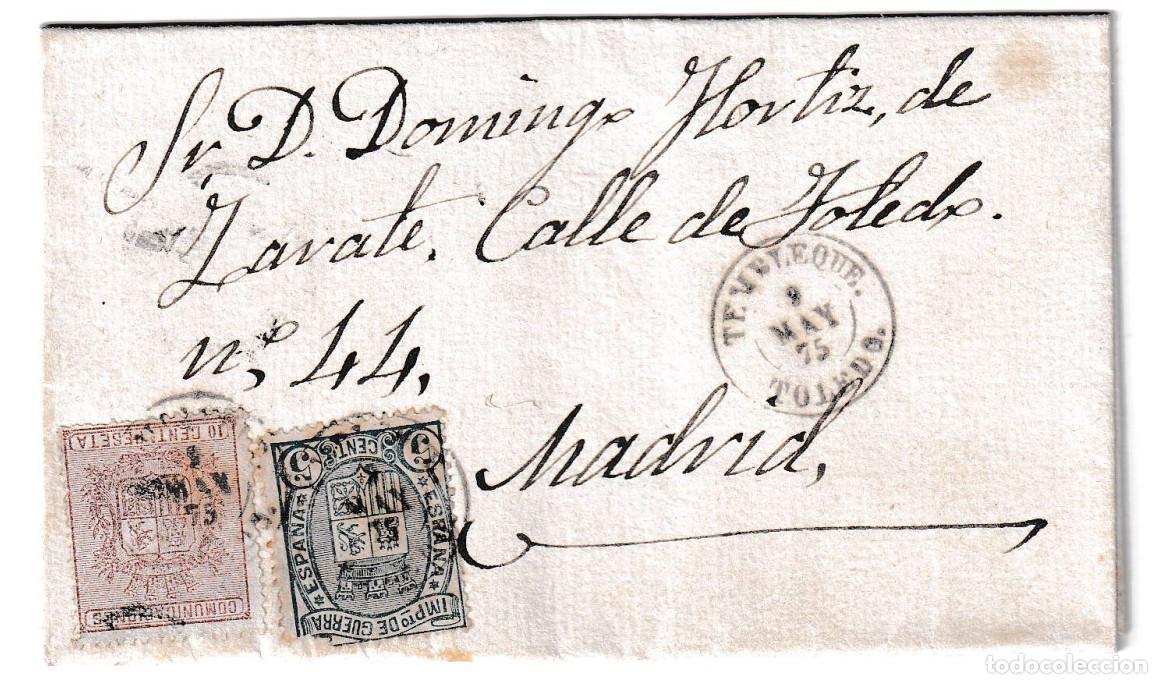 Sr. D. Domingo Hortiz, de
Zarate. Calle de Toledo.
nº. 44,
Madrid,
TEMBLEQUE.
9
MAY
75
TOLEDO.
10 CENTS PESETA
9
MAY
75
COMUNICACIONES
5 CENTS 5
ESPAÑA
ESPAÑA
MAY
75
IMPTO DE GUERRA
todocoleccion